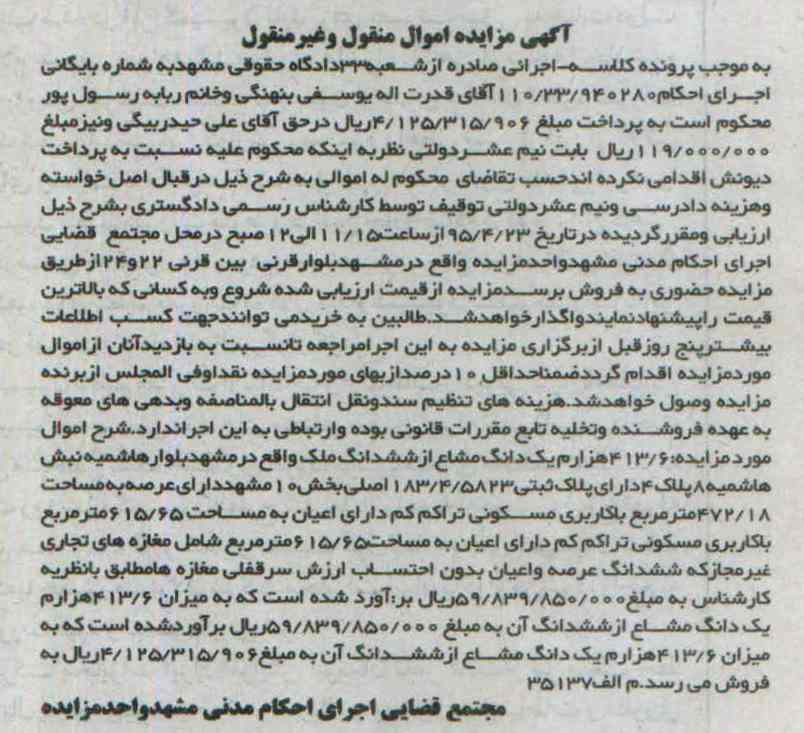 آگهی مزایده اموال منقول وغیرمنقول
به موجب پرونده کلاسه-اجرائی صادره ازشعبه۳۳دادگاه حقوقی مشهدبه شماره بایگانی
اجرای احکام۱۱۰/۳۳/۹۴۰۲۸۰آقای قدرت اله یوسفی بنهنگی وخانم ربابه رسول پور
محکوم است به پرداخت مبلغ ۴/۱۲۵/۳۱۵/۹۰۶ریال درحق آقای علی حیدربیگی ونیزمبلغ
۱۱۹/۰۰۰/۰۰۰ریال بابت نیم عشردولتی نظربه اینکه محکوم علیه نسبت به پرداخت
دیونش اقدامی نکرده اندحسب تقاضای محکوم له اموالی به شرح ذیل درقبال اصل خواسته
وهزینه دادرسی ونیم عشردولتی توقیف توسط کارشناس رسمی دادگستری بشرح ذیل
ارزیابی ومقررگردیده درتاریخ ۹۵/۴/۲۳ازساعت۱۱/۱۵الی۱۲صبح درمحل مجتمع قضایی
اجرای احکام مدنی مشهدواحدمزایده واقع درمشهدبلوارقرنی بین قرنی ۲۲و۲۴ازطریق
مزایده حضوری به فروش برسدمزایده ازقیمت ارزیابی شده شروع وبه کسانی که بالاترین
قیمت راپیشنهادنمایندواگذارخواهدشد.طالبین به خریدمی توانندجهت کسب اطلاعات
بیشترپنج روزقبل ازبرگزاری مزایده به این اجرامراجعه تانسبت به بازدیدآنان ازاموال
موردمزایده اقدام گرددضمناحداقل ۱۰درصدازبهای موردمزایده نقداوفی المجلس ازبرنده
مزایده وصول خواهدشد.هزینه های تنظیم سندونقل انتقال بالمناصفه وبدهی های معوقه
به عهده فروشنده وتخلیه تابع مقررات قانونی بوده وارتباطی به این اجراندارد.شرح اموال
مورد مزایده:۴۱۳/۶هزارم یک دانگ مشاع ازششدانگ ملک واقع درمشهدبلوارهاشمیه نبش
هاشمیه۸پلاک۴دارای پلاک ثبتی۱۸۳/۴/۵۸۲۳اصلی بخش۱۰مشهددارای عرصه به مساحت
۴۷۲/۱۸مترمربع باکاربری مسکونی تراکم کم دارای اعیان به مساحت ۶۱۵/۶۵مترمربع
باکاربری مسکونی تراکم کم دارای اعیان به مساحت۶۱۵/۶۵مترمربع شامل مغازه های تجاری
غیرمجازکه ششدانگ عرصه واعیان بدون احتساب ارزش سرقفلی مغازه هامطابق بانظریه
کارشناس به مبلغ۵۹/۸۳۹/۸۵۰/۰۰۰ریال بر:آورد شده است که به میزان ۴۱۳/۶هزارم
یک دانگ مشاع ازششدانگ آن به مبلغ ۵۹/۸۳۹/۸۵۰/۰۰۰ریال برآوردشده است که به
میزان ۴۱۳/۶هزارم یک دانگ مشاع ازششدانگ آن به مبلغ۴/۱۲۵/۳۱۵/۹۰۶ریال به
فروش می رسد.م الف۳۵۱۳۷
مجتمع قضایی اجرای احکام مدنی مشهدواحدمزایده